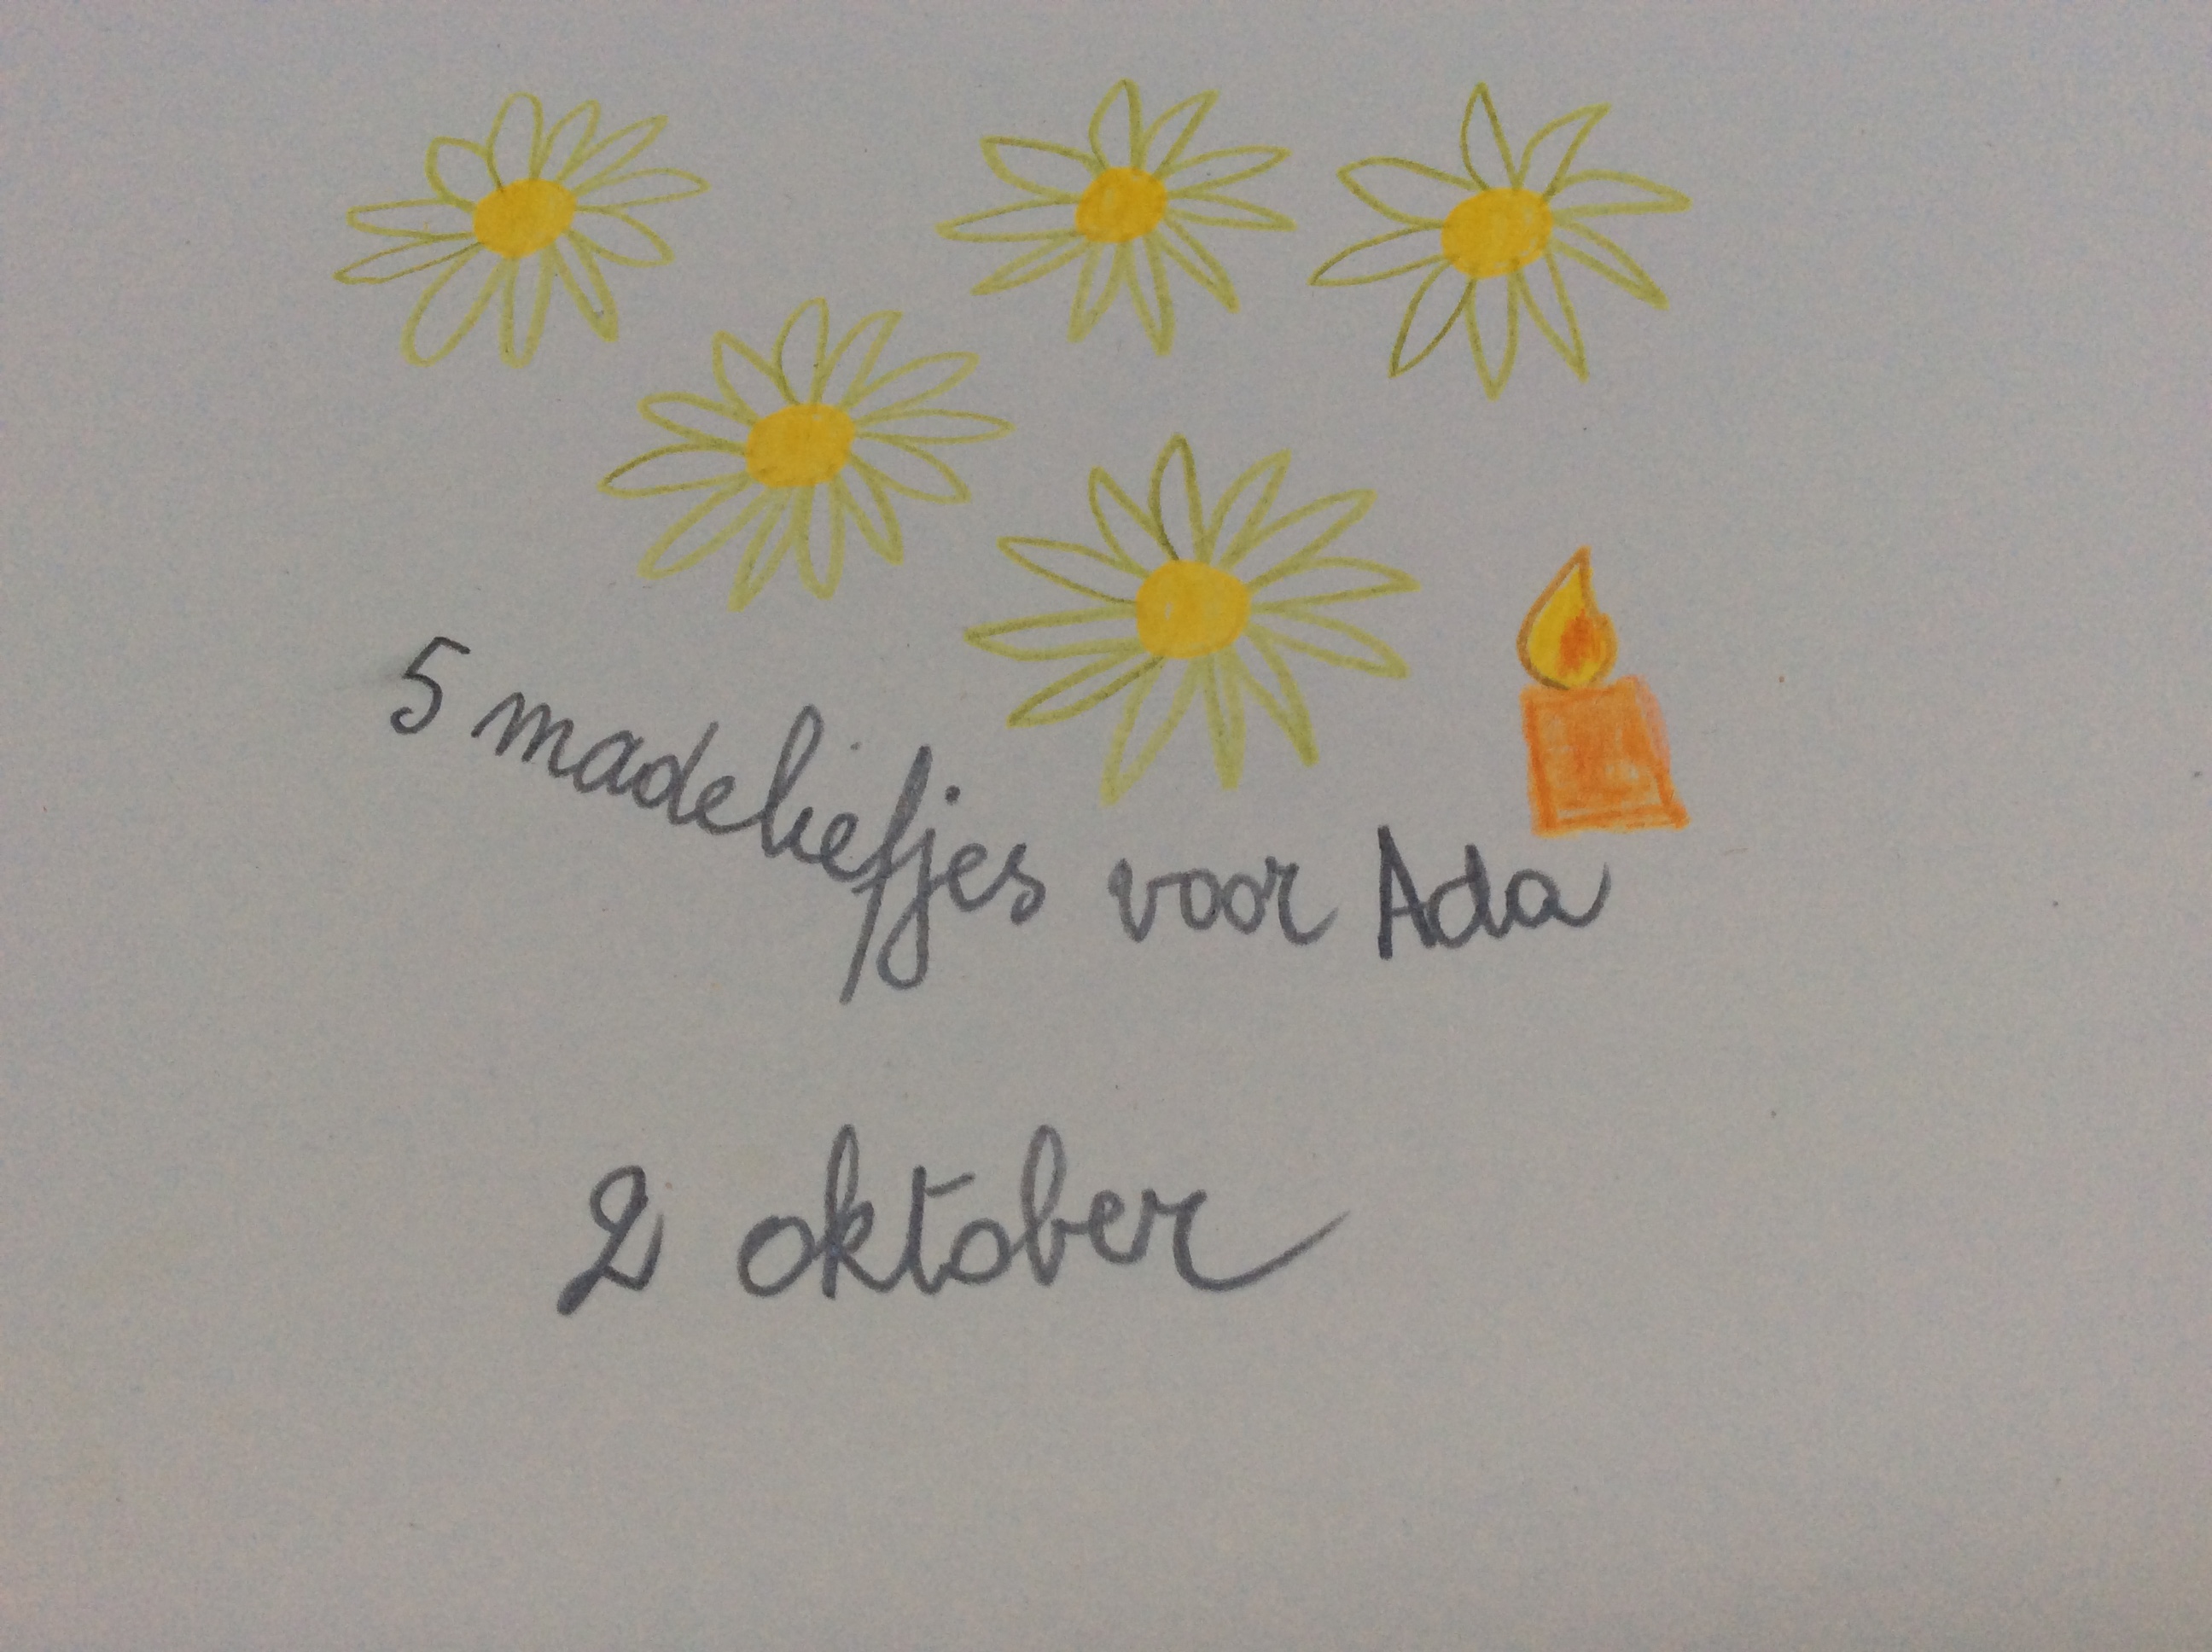 5 madeliefjes voor Ada
2 oktober